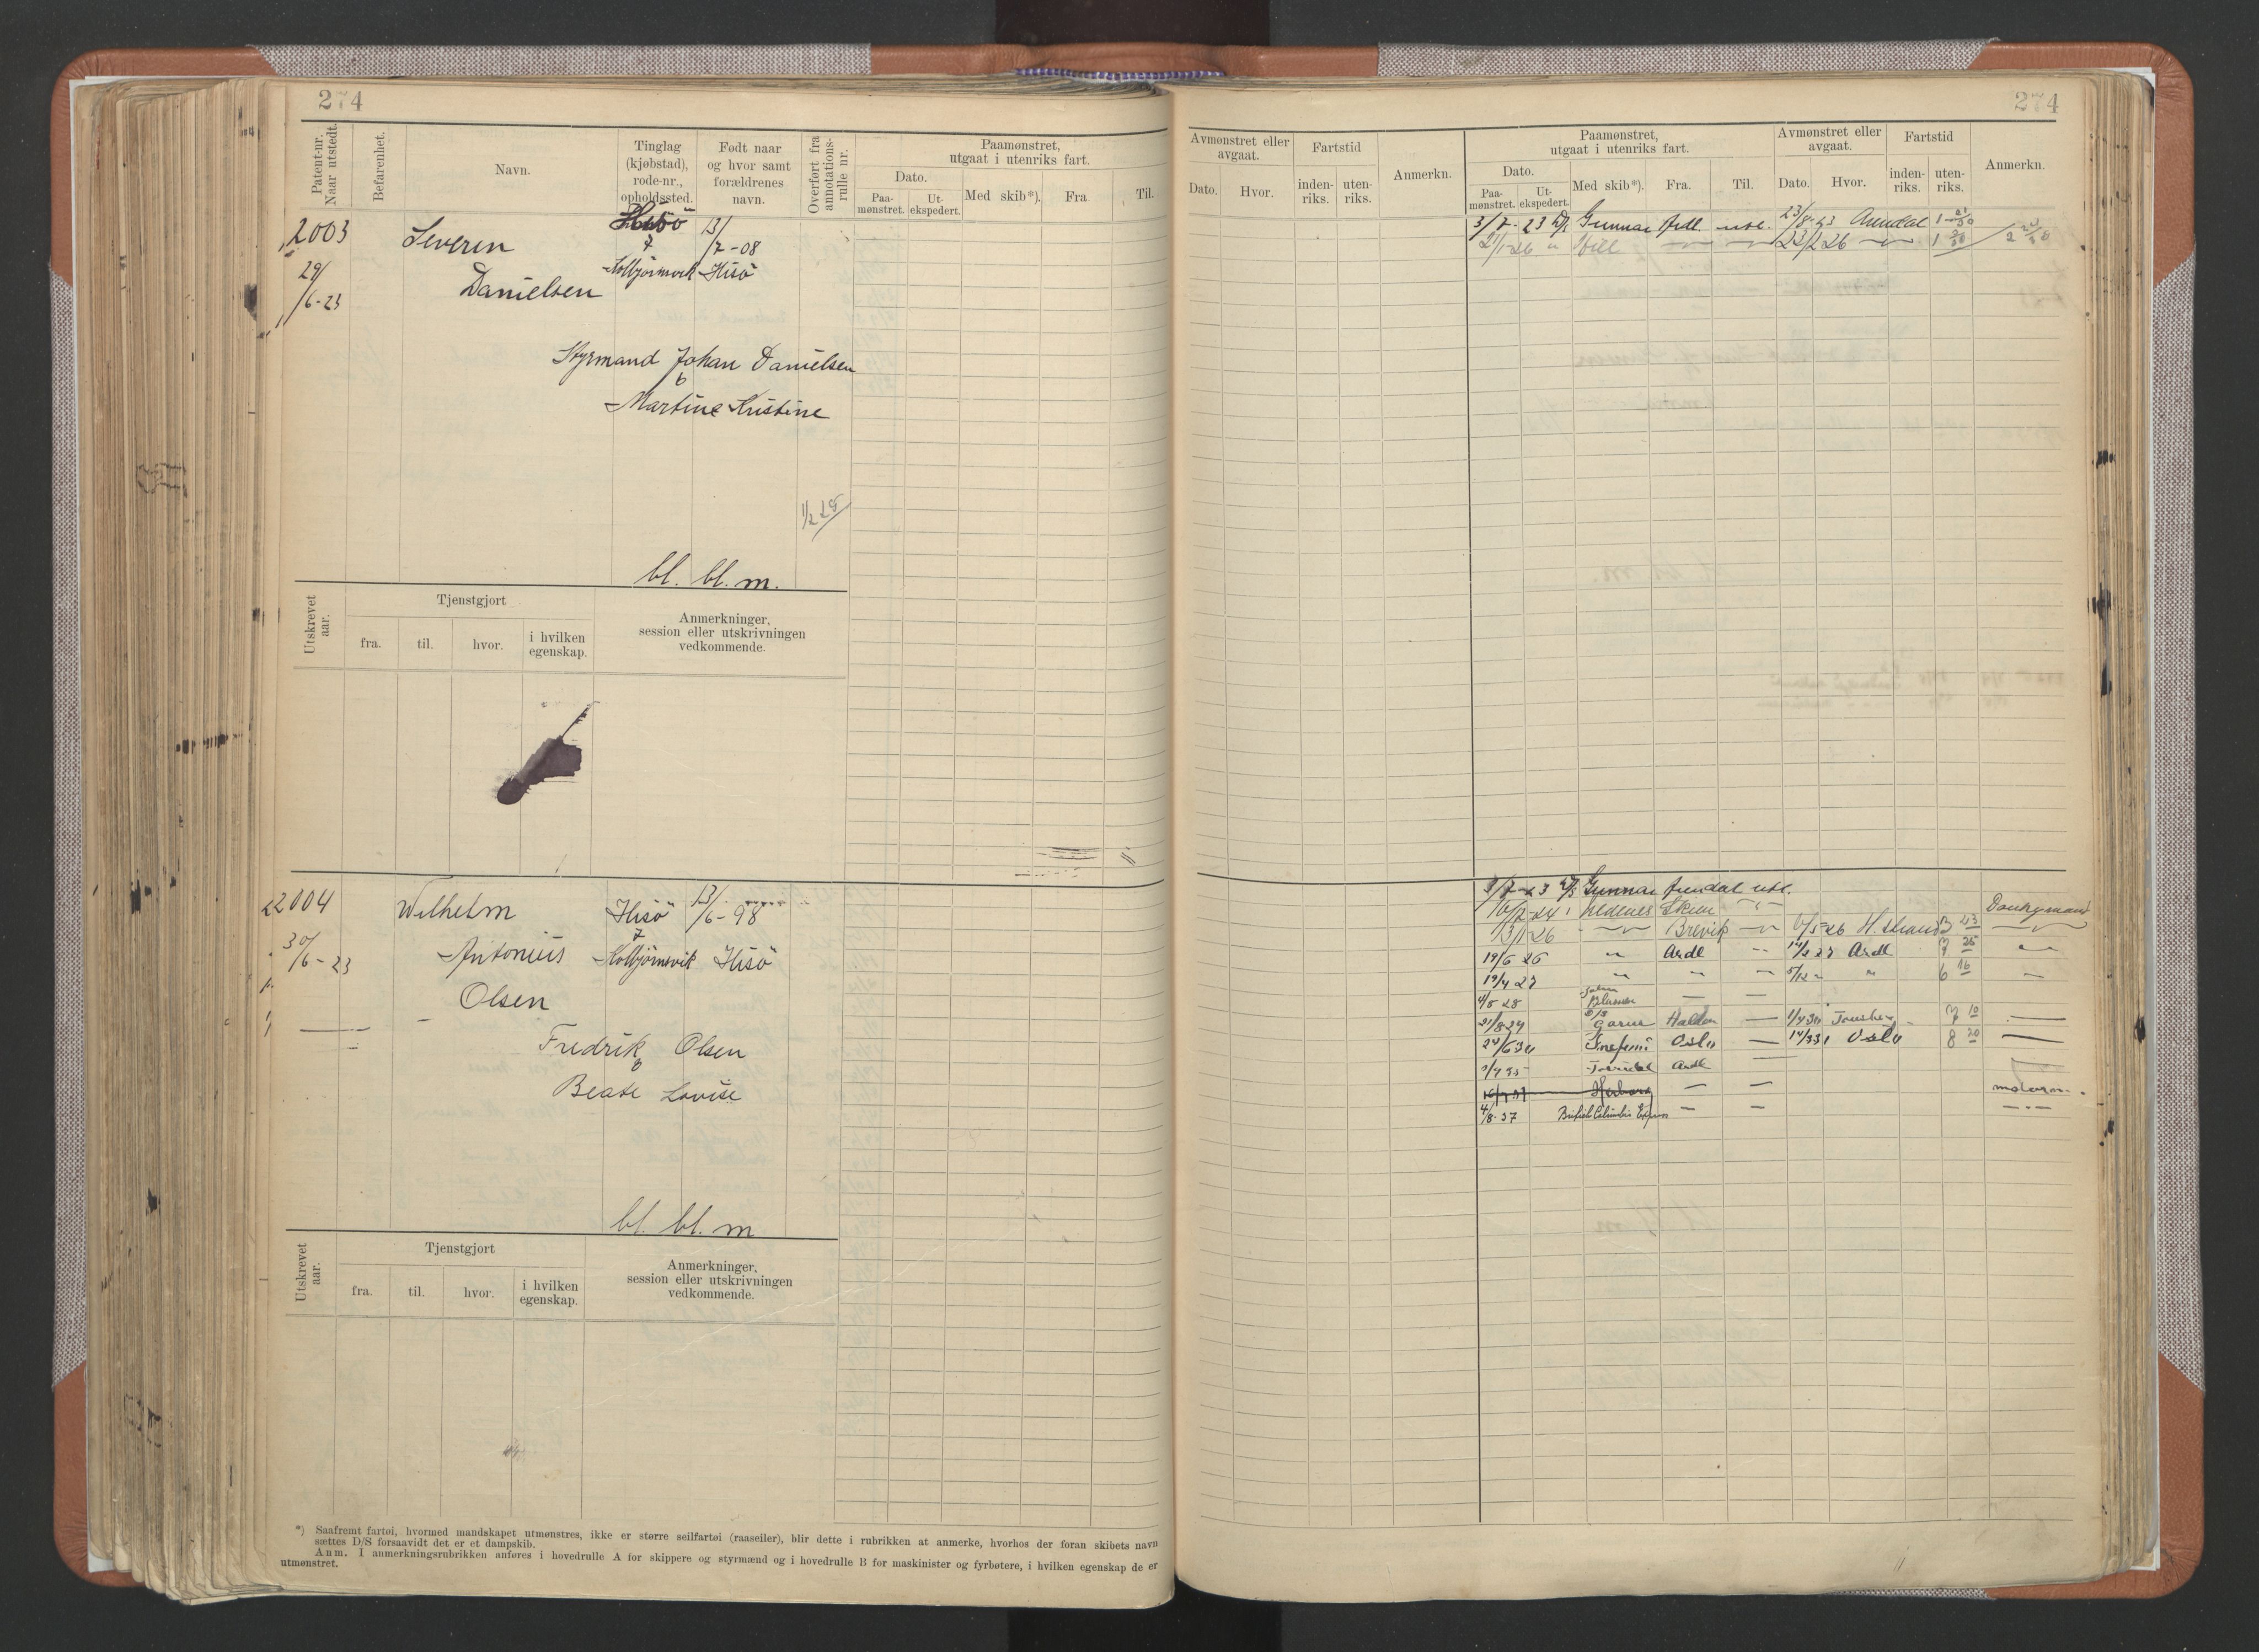 274
Patent-nr. Naar utstedt.
Befarenhet.
Navn.
Tinglag (kjøbstad), rode-nr., opholdssted.
Født naar og hvor samt forældrenes navn.
Overført fra annotations-rulle nr.
Paamønstret, utgaat i utenriks fart.
Dato.
Paa-mønstret.
Ut-ekspedert.
Med skib*).
Fra.
Til.
2003
29/6-23
Severin
Danielsen
Hisö
7
Kolbjørnsvik
13/7-08
Hisö
Styrmand Johan Danielsen
Martine Kristine
1/2 28
bl. bl. m.
Utskrevet aar.
Tjenstgjort
fra.
til.
hvor.
i hvilken egenskap.
Anmerkninger, session eller utskrivningen vedkommende.
2004
30/6-23
Wilhelm
Antonius
Olsen
Hisö
7
Kolbjørnsvik
13/6-98
Hisö
Fredrik Olsen
Beate Lovise
bl. bl. m
Utskrevet aar.
Tjenstgjort
fra.
til.
hvor.
i hvilken egenskap.
Anmerkninger, session eller utskrivningen vedkommende.
*) Saafremt fartøi, hvormed mandskapet utmønstres, ikke er større seilfartøi (raaseiler), blir dette i rubrikken at anmerke, hvorhos der foran skibets navn
sættes D/S forsaavidt det er et dampskib.
Anm. I anmerkningsrubrikken anføres i hovedrulle A for skippere og styrmænd og i hovedrulle B for maskinister og fyrbøtere, i hvilken egenskap de er
utmønstret.
274
Avmønstret eller avgaat.
Dato.
Hvor.
Fartstid
inden-riks.
uten-riks.
Anmerkn.
Paamønstret, utgaat i utenriks fart.
Dato.
Paa-mønstret.
Ut-ekspedert.
Med skib*).
Fra.
Til.
Avmønstret eller avgaat.
Dato.
Hvor.
Fartstid
inden-riks.
uten-riks.
Anmerkn.
3/7-23 Gunnar Ardl utl. 23/8-23 Arendal 1
21/1-26 22/2 26 1
3/7-23 Gunnar Arendal utl.
16/2-24 Nedenes Skien Donkymand
13/1 26 Brevik 6/5-26 H.strand 3 23
19/6 26 " Ardl 14/2 27 Ardl 7 25
19/4 27 " " 5/12 " 6 16
4/5 28
21/8 29 Garus Halden 1/4 30 Tønsberg 7 10
24/6 30 Oslo 14/3 31 Oslo 8 20
Ardl
4/8-37 British Columbia Express